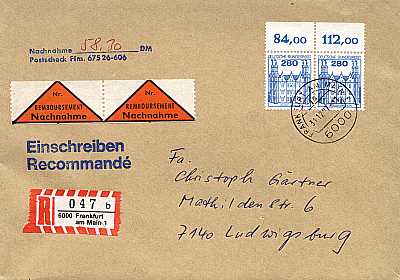 84,00 112,00
Nachnahme 58,30 DM
Postscheck Ffm. 67526-606
DEUTSCHE BUNDESPOST DEUTSCHE BUNDESPOST
280 280
Nr. Nr.
REMBOURSEMENT REMBOURSEMENT
Nachnahme Nachnahme
FRANKFURT AM MAIN
31.12
6000
Einschreiben
Recommandé
R 047 b
6000 Frankfurt
am Main 1
Fa.
Christoph Gärtner
Mathildenstr. 6
7140 Ludwigsburg